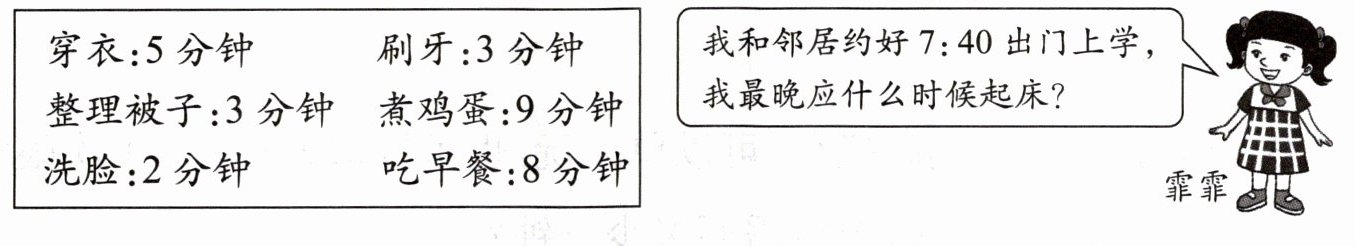 穿衣:5 分钟 刷牙:3 分钟
整理被子:3 分钟 煮鸡蛋:9 分钟
洗脸:2 分钟 吃早餐:8 分钟
我和邻居约好 7:40 出门上学,
我最晚应什么时候起床?
霏霏